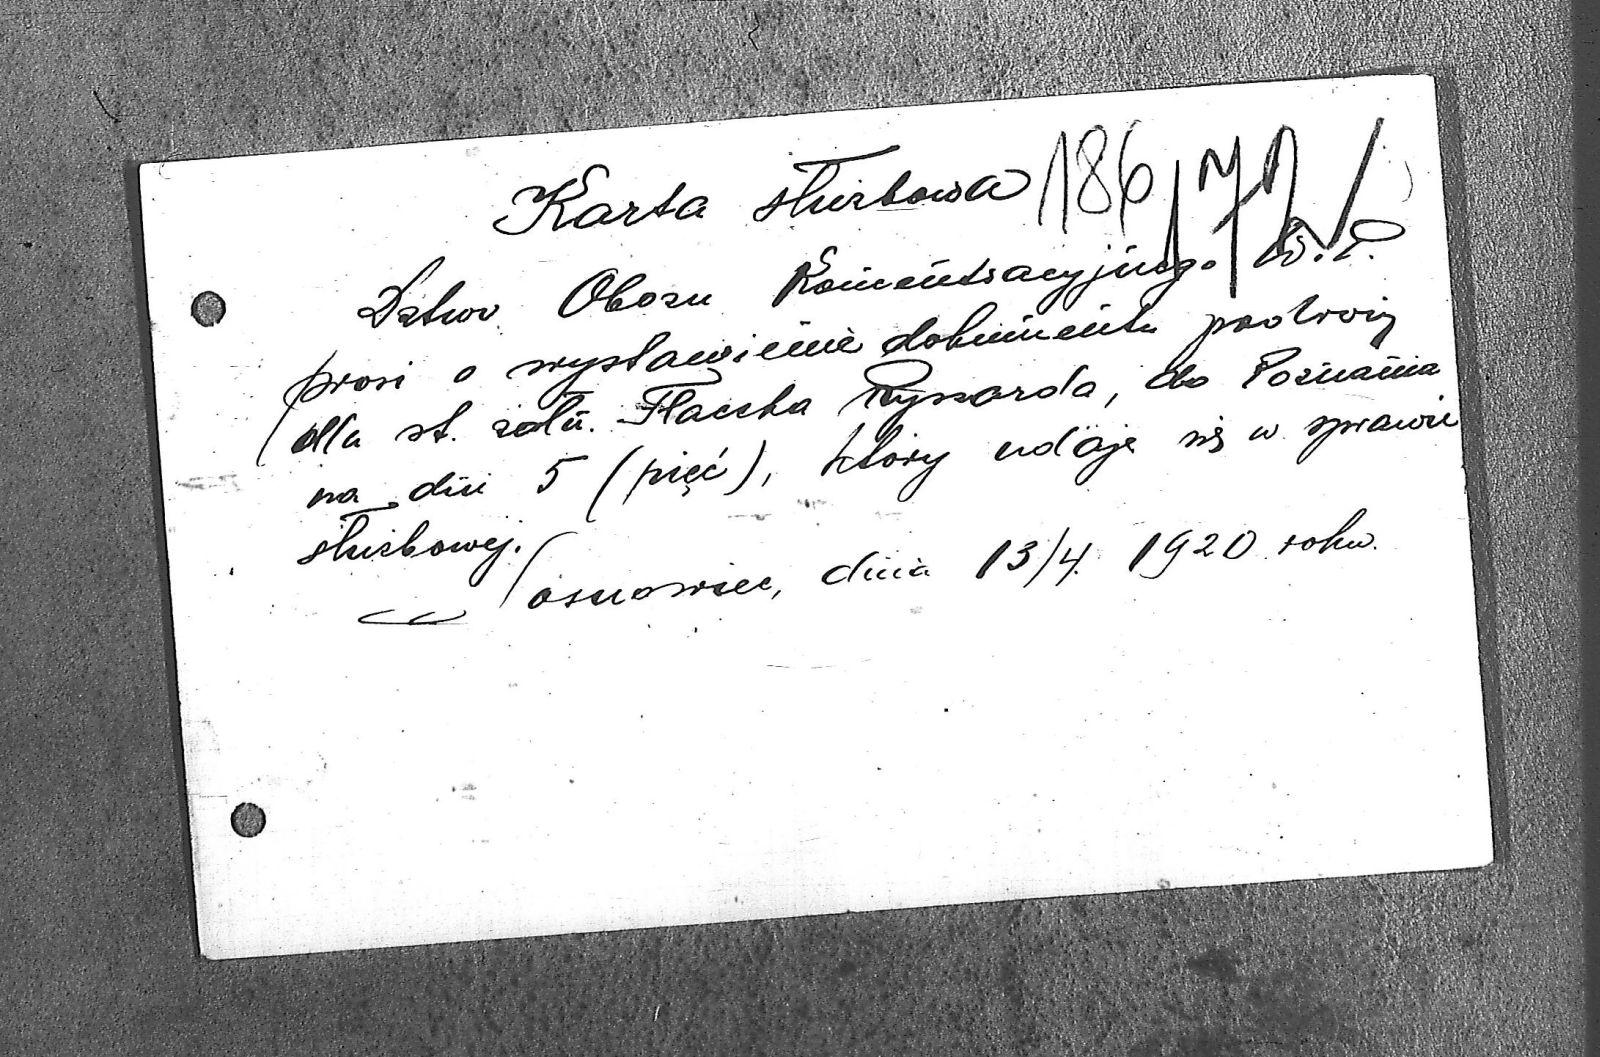 Karta służbowa 186
Dztwo Obozu Koncentracyjnego W.P.
prosi o wystawienie dokumentu podroży
dla st. żołn. Flaczka Ryszarda, do Poznania
na dni 5 (pięć), który udaje się w sprawie
służbowej.
Sosnowiec, dnia 13/4. 1920 roku.